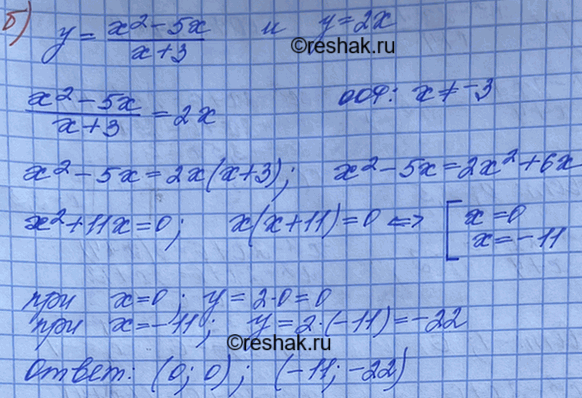 б) y = (x² - 5x)/(x + 3) и y = 2x
©reshak.ru
(x² - 5x)/(x + 3) = 2x ооф: x ≠ -3
x² - 5x = 2x(x + 3); x² - 5x = 2x² + 6x
x² + 11x = 0; x(x + 11) = 0 ⇔ [ x = 0
x = -11
при x = 0; y = 2·0 = 0
при x = -11; y = 2·(-11) = -22
©reshak.ru
Ответ: (0; 0); (-11; -22)